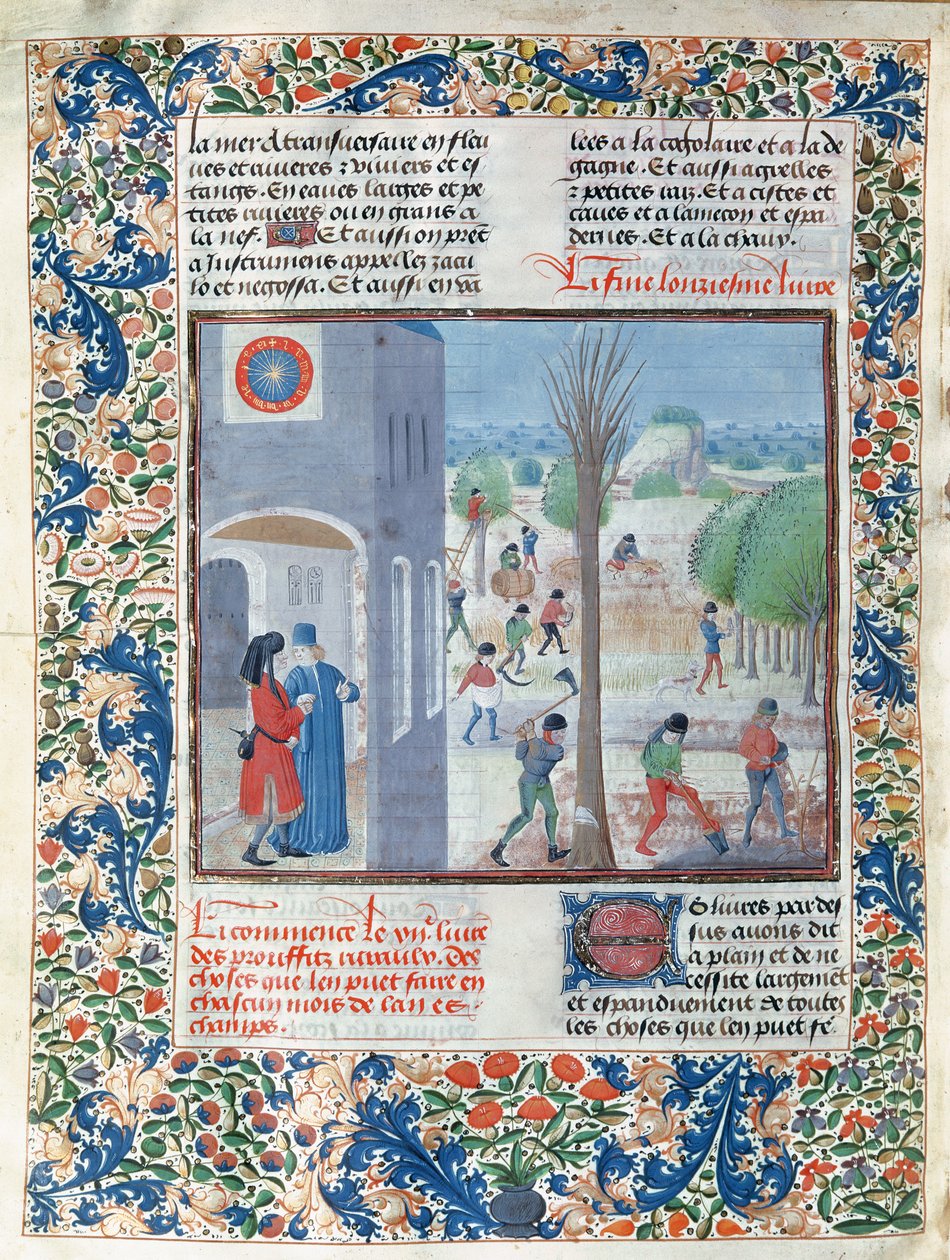 la mer & transuersaire en fleu
ues et riuieres ⁊ viuiers et es
tangs. En eaues larges et pe
tites riuieres ou en grans a
la nef. Et aussi on prēt
a Instrumens appellez iacu
lo et negossa. Et aussi en va
lees a la cogolaire et a la de
gagne. Et aussi a grelles
⁊ petites raiz. Et a cistes et
caues et a lamecon et espa
deries. Et a la chaux.
Li fine lonziesme liure
Li commence le xij.e liure
des prouffitz ruraulx. Des
choses que len puet faire en
chascun mois de lan es
champs.
Es liures par des
sus auons dit
a plain et de ne
cessite largemēt
et espanduement de toutes
les choses que len puet fe